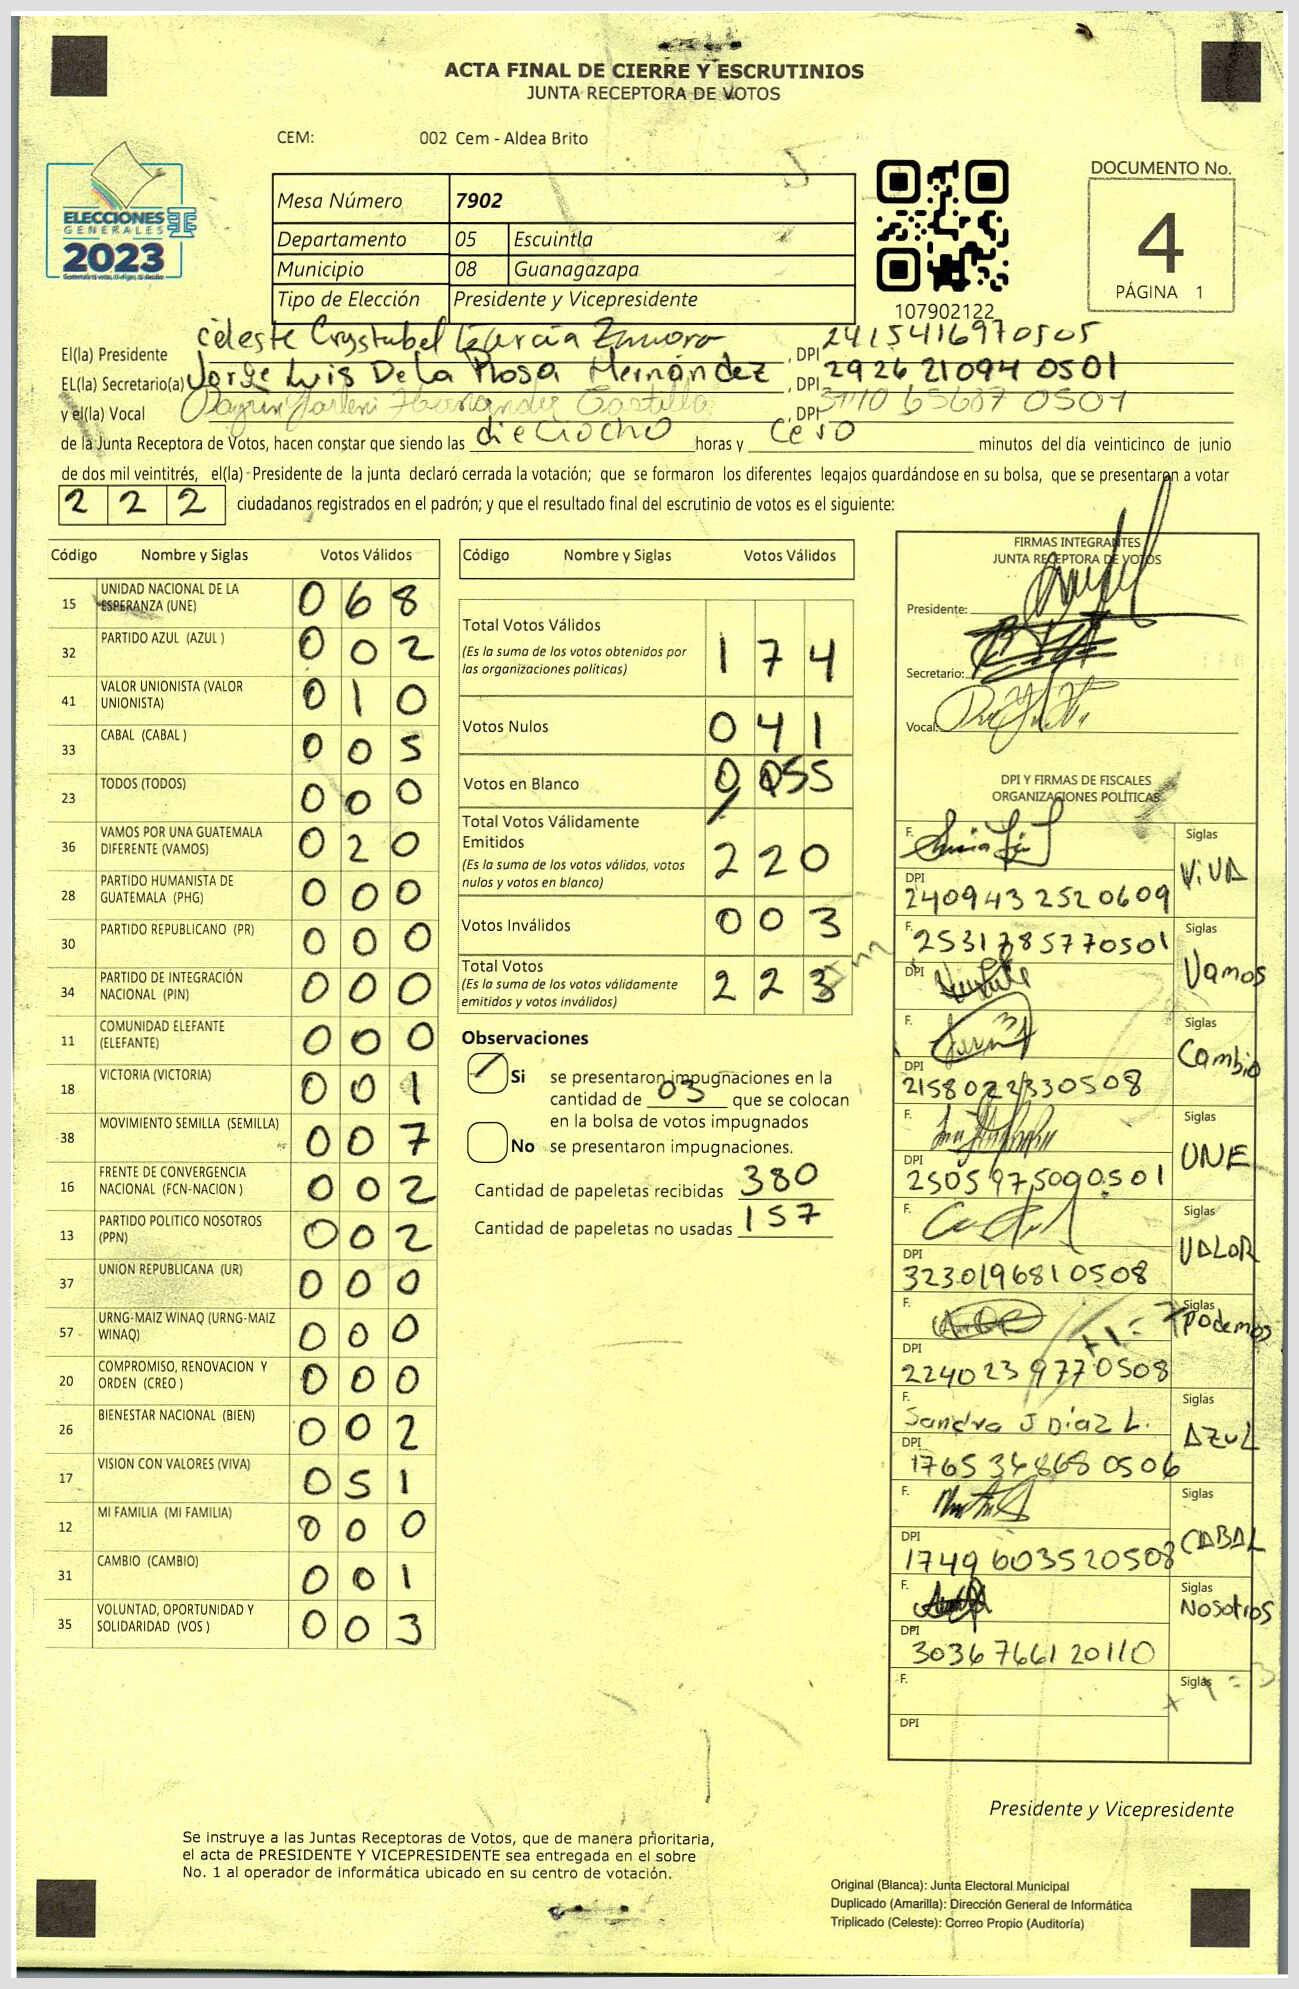 ACTA FINAL DE CIERRE Y ESCRUTINIOS
JUNTA RECEPTORA DE VOTOS
CEM: 002 Cem - Aldea Brito
ELECCIONES
GENERALES
2023
Mesa Número 7902
Departamento 05 Escuintla
Municipio 08 Guanagazapa
Tipo de Elección Presidente y Vicepresidente
107902122
DOCUMENTO No.
4
PÁGINA 1
El(la) Presidente Celeste Crystabel García Zamora , DPI 2415416970505
EL(la) Secretario(a) Jorge Luis De La Rosa Hernández , DPI 2926210940501
y el(la) Vocal Hernández Castillo , DPI
de la Junta Receptora de Votos, hacen constar que siendo las dieciocho horas y cero minutos del día veinticinco de junio
de dos mil veintitrés, el(la) Presidente de la junta declaró cerrada la votación; que se formaron los diferentes legajos guardándose en su bolsa, que se presentaron a votar
222 ciudadanos registrados en el padrón; y que el resultado final del escrutinio de votos es el siguiente:
Código Nombre y Siglas Votos Válidos
15 UNIDAD NACIONAL DE LA ESPERANZA (UNE) 068
32 PARTIDO AZUL (AZUL ) 002
41 VALOR UNIONISTA (VALOR UNIONISTA) 010
33 CABAL (CABAL ) 005
23 TODOS (TODOS) 000
36 VAMOS POR UNA GUATEMALA DIFERENTE (VAMOS) 020
28 PARTIDO HUMANISTA DE GUATEMALA (PHG) 000
30 PARTIDO REPUBLICANO (PR) 000
34 PARTIDO DE INTEGRACIÓN NACIONAL (PIN) 000
11 COMUNIDAD ELEFANTE (ELEFANTE) 000
18 VICTORIA (VICTORIA) 001
38 MOVIMIENTO SEMILLA (SEMILLA) 007
16 FRENTE DE CONVERGENCIA NACIONAL (FCN-NACION ) 002
13 PARTIDO POLITICO NOSOTROS (PPN) 002
37 UNION REPUBLICANA (UR) 000
57 URNG-MAIZ WINAQ (URNG-MAIZ WINAQ) 000
20 COMPROMISO, RENOVACION Y ORDEN (CREO ) 000
26 BIENESTAR NACIONAL (BIEN) 002
17 VISION CON VALORES (VIVA) 051
12 MI FAMILIA (MI FAMILIA) 000
31 CAMBIO (CAMBIO) 001
35 VOLUNTAD, OPORTUNIDAD Y SOLIDARIDAD (VOS ) 003
Código Nombre y Siglas Votos Válidos
Total Votos Válidos 174
(Es la suma de los votos obtenidos por
las organizaciones políticas)
Votos Nulos 041
Votos en Blanco
Total Votos Válidamente
Emitidos 220
(Es la suma de los votos válidos, votos
nulos y votos en blanco)
Votos Inválidos 003
Total Votos 223
(Es la suma de los votos válidamente
emitidos y votos inválidos)
Observaciones
Si se presentaron impugnaciones en la
cantidad de 03 que se colocan
en la bolsa de votos impugnados
No se presentaron impugnaciones.
Cantidad de papeletas recibidas 380
Cantidad de papeletas no usadas 157
FIRMAS INTEGRANTES
JUNTA RECEPTORA DE VOTOS
Presidente:
Secretario:
Vocal:
DPI Y FIRMAS DE FISCALES
ORGANIZACIONES POLÍTICAS
F. Siglas VIVA
DPI 2409432520609
F. 2531785770501 Siglas Vamos
DPI
F. Siglas Cambio
DPI 2158022330508
F. Siglas UNE
DPI 2505975090501
F. Siglas VALOR
DPI 3230196810508
F. Siglas Podemos
DPI 2240239770508
F. Sandra J Díaz L. Siglas AZUL
DPI 1765348680506
F. Siglas CABAL
DPI 1749603520508
F. Siglas Nosotros
DPI 3036766120110
F. Siglas
DPI
Presidente y Vicepresidente
Se instruye a las Juntas Receptoras de Votos, que de manera prioritaria,
el acta de PRESIDENTE Y VICEPRESIDENTE sea entregada en el sobre
No. 1 al operador de informática ubicado en su centro de votación.
Original (Blanca): Junta Electoral Municipal
Duplicado (Amarilla): Dirección General de Informática
Triplicado (Celeste): Correo Propio (Auditoría)